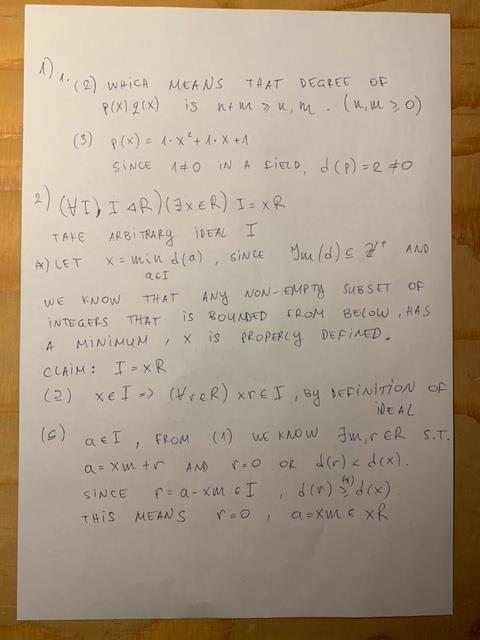 1) 1. (2) WHICH MEANS THAT DEGREE OF
p(x)q(x) IS n+m ≥ n, m. (n, m ≥ 0)
(3) p(x) = 1·x²+1·x+1
SINCE 1≠0 IN A FIELD, d(p)=2 ≠0
2) (∀I), I ⊲ R) (∃x∈R) I=xR
TAKE ARBITRARY IDEAL I
(*) LET x = min d(a), SINCE Im(d) ⊆ ℤ⁺ AND
a∈I
WE KNOW THAT ANY NON-EMPTY SUBSET OF
INTEGERS THAT IS BOUNDED FROM BELOW, HAS
A MINIMUM, x IS PROPERLY DEFINED.
CLAIM: I = xR
(⊇) x∈I => (∀r∈R) xr∈I, BY DEFINITION OF
IDEAL
(⊆) a∈I, FROM (1) WE KNOW ∃m,r∈R S.T.
a=xm+r AND r=0 OR d(r)<d(x).
SINCE r=a-xm∈I, d(r) ≥(*) d(x)
THIS MEANS r=0, a=xm∈xR